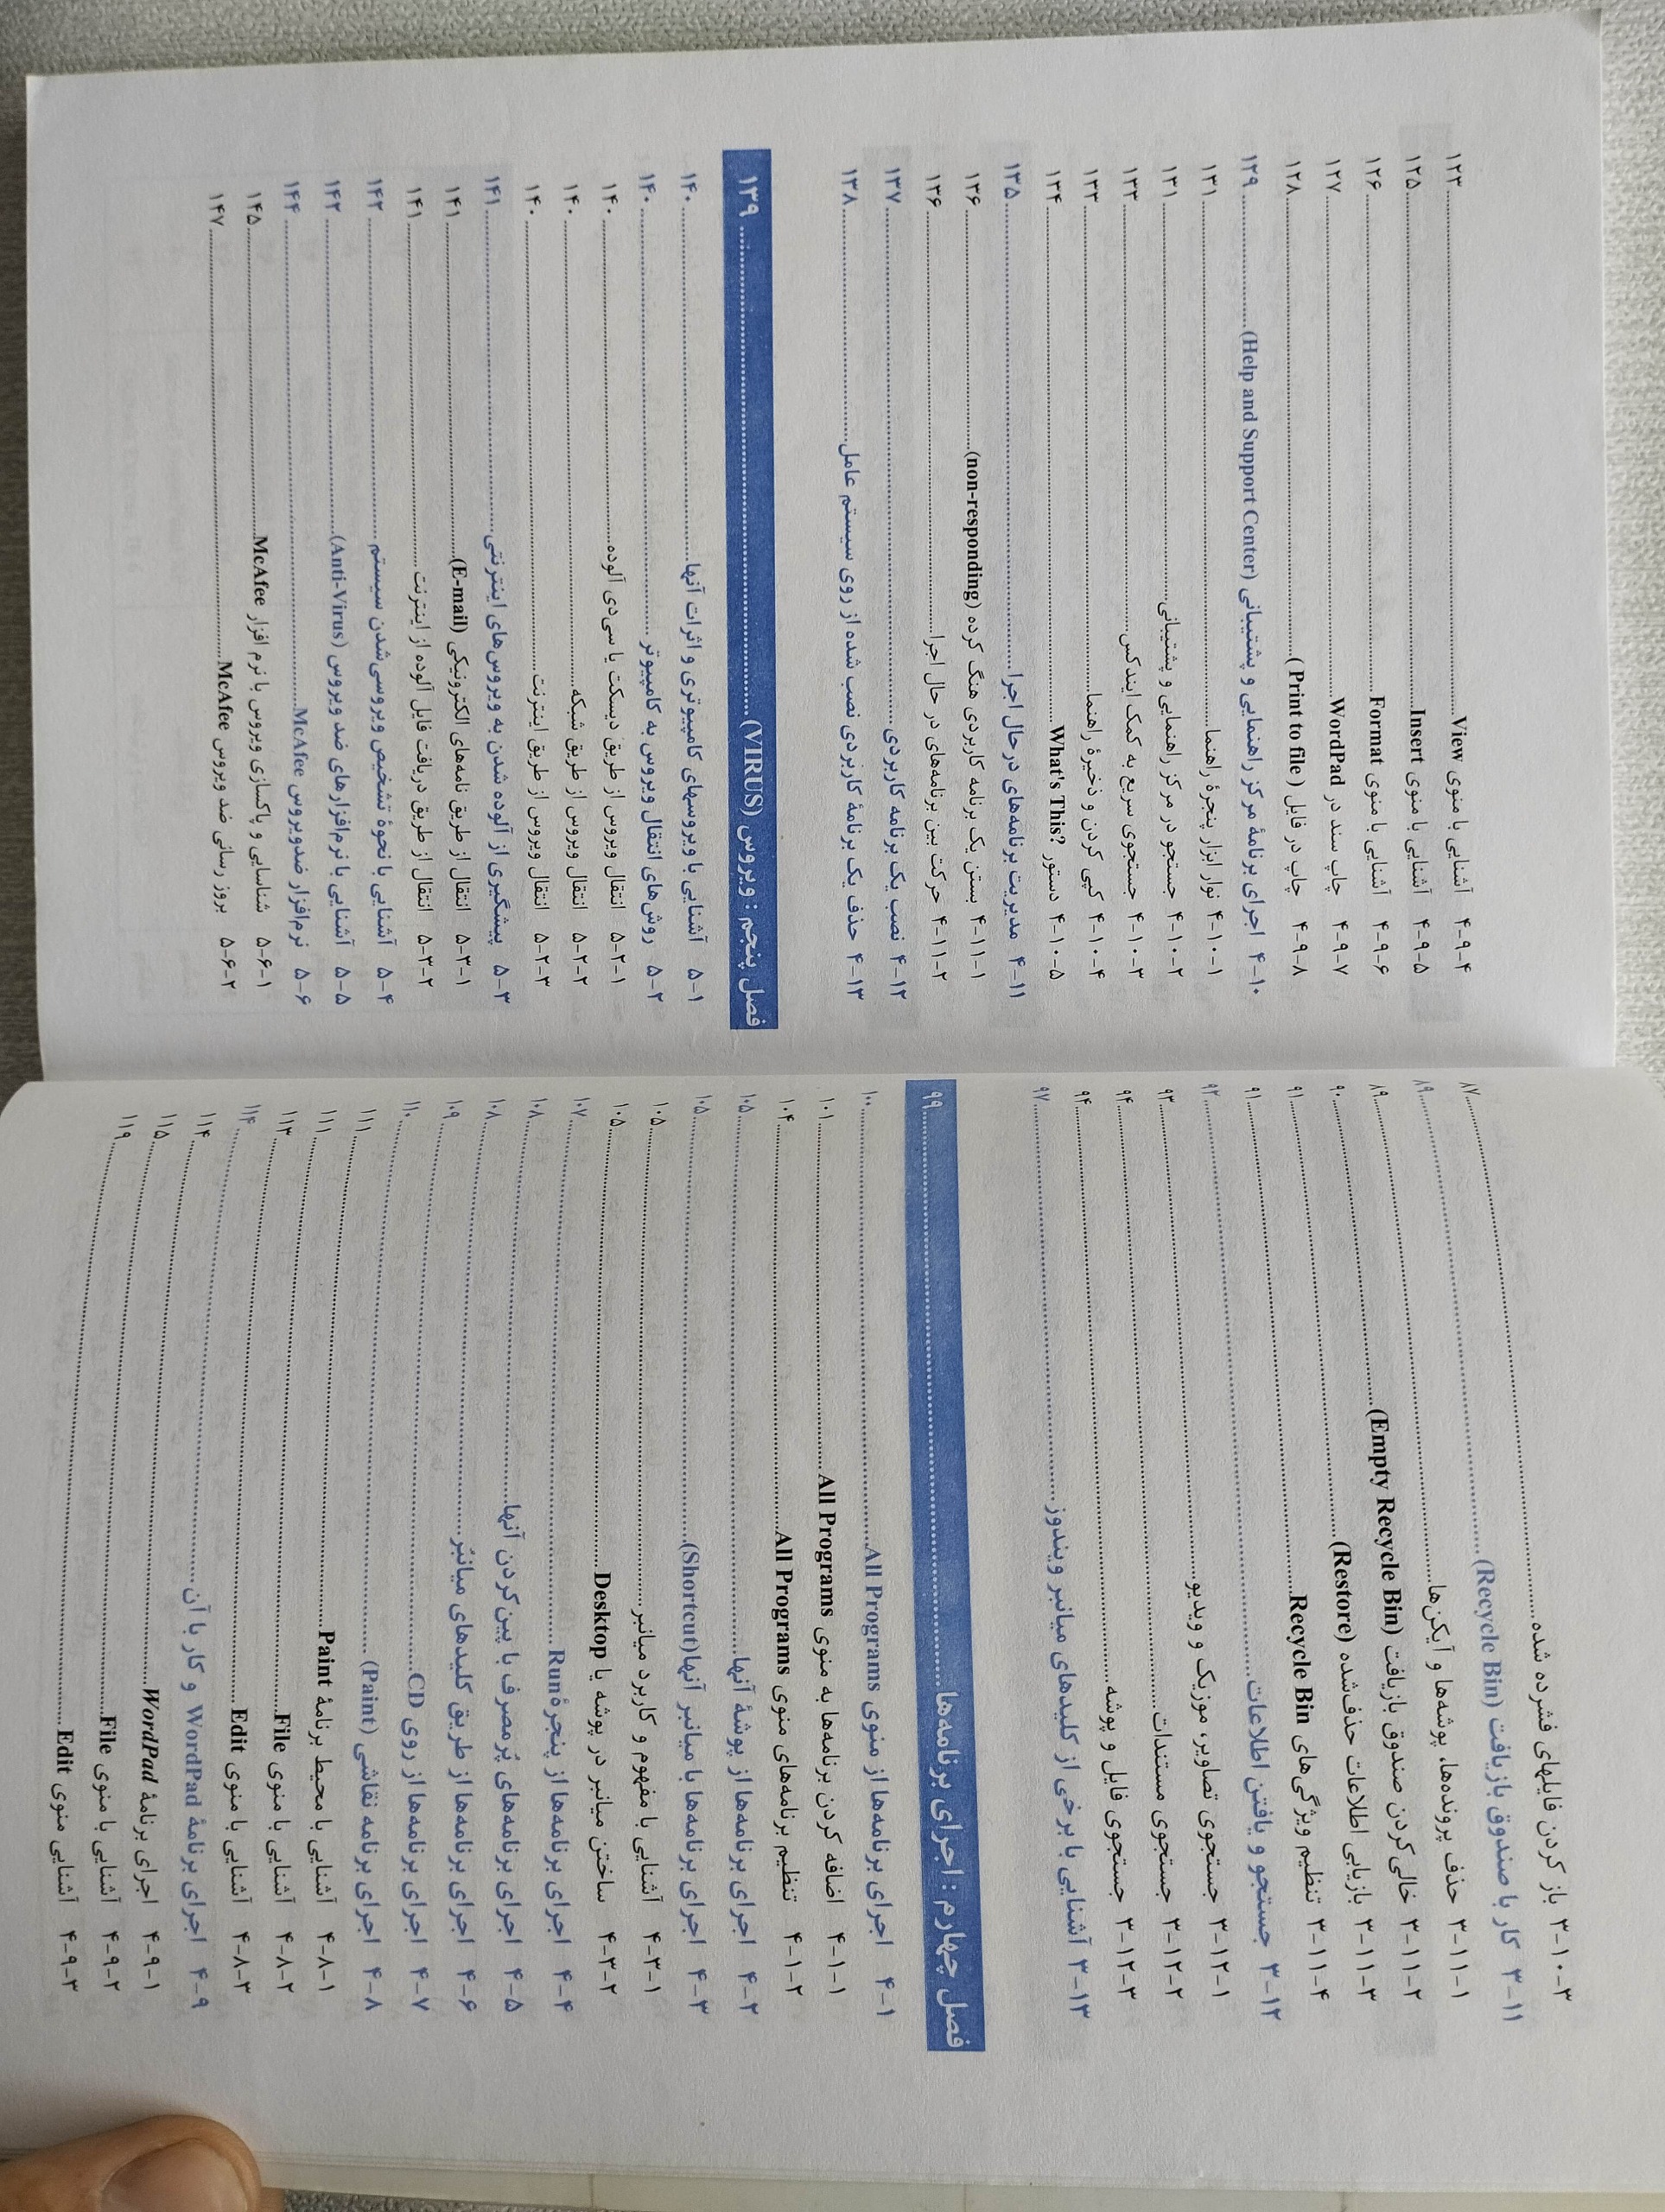 ۳-۱۰-۳ باز کردن فایلهای فشرده شده ........ ۸۷
۳-۱۱ کار با صندوق بازیافت (Recycle Bin) ........ ۸۹
۳-۱۱-۱ حذف پرونده‌ها، پوشه‌ها و آیکن‌ها ........ ۸۹
۳-۱۱-۲ خالی کردن صندوق بازیافت (Empty Recycle Bin) ........ ۸۹
۳-۱۱-۳ بازیابی اطلاعات حذف‌شده (Restore) ........ ۹۰
۳-۱۱-۴ تنظیم ویژگی‌های Recycle Bin ........ ۹۱
۳-۱۲ جستجو و یافتن اطلاعات ........ ۹۱
۳-۱۲-۱ جستجوی تصاویر، موزیک و ویدیو ........ ۹۲
۳-۱۲-۲ جستجوی مستندات ........ ۹۳
۳-۱۲-۳ جستجوی فایل و پوشه ........ ۹۴
۳-۱۳ آشنایی با برخی از کلیدهای میانبر ویندوز ........ ۹۷
فصل چهارم : اجرای برنامه‌ها ........ ۹۹
۴-۱ اجرای برنامه‌ها از منوی All Programs ........ ۱۰۰
۴-۱-۱ اضافه کردن برنامه‌ها به منوی All Programs ........ ۱۰۱
۴-۱-۲ تنظیم برنامه‌های منوی All Programs ........ ۱۰۴
۴-۲ اجرای برنامه‌ها از پوشهٔ آنها ........ ۱۰۵
۴-۳ اجرای برنامه‌ها با میانبر آنها(Shortcut) ........ ۱۰۵
۴-۳-۱ آشنایی با مفهوم و کاربرد میانبر ........ ۱۰۵
۴-۳-۲ ساختن میانبر در پوشه یا Desktop ........ ۱۰۵
۴-۴ اجرای برنامه‌ها از پنجرهٔ Run ........ ۱۰۷
۴-۵ اجرای برنامه‌های پُرمصرف با پین‌کردن آنها ........ ۱۰۸
۴-۶ اجرای برنامه‌ها از طریق کلیدهای میانبُر ........ ۱۰۸
۴-۷ اجرای برنامه‌ها از روی CD ........ ۱۰۹
۴-۸ اجرای برنامه نقاشی (Paint) ........ ۱۱۰
۴-۸-۱ آشنایی با محیط برنامهٔ Paint ........ ۱۱۱
۴-۸-۲ آشنایی با منوی File ........ ۱۱۱
۴-۸-۳ آشنایی با منوی Edit ........ ۱۱۳
۴-۹ اجرای برنامهٔ WordPad و کار با آن ........ ۱۱۴
۴-۹-۱ اجرای برنامهٔ WordPad ........ ۱۱۴
۴-۹-۲ آشنایی با منوی File ........ ۱۱۵
۴-۹-۳ آشنایی منوی Edit ........ ۱۱۹
۴-۹-۴ آشنایی با منوی View ........ ۱۲۳
۴-۹-۵ آشنایی با منوی Insert ........ ۱۲۵
۴-۹-۶ آشنایی با منوی Format ........ ۱۲۶
۴-۹-۷ چاپ سند در WordPad ........ ۱۲۷
۴-۹-۸ چاپ در فایل ( Print to file ) ........ ۱۲۸
۴-۱۰ اجرای برنامهٔ مرکز راهنمایی و پشتیبانی (Help and Support Center) ........ ۱۲۹
۴-۱۰-۱ نوار ابزار پنجرهٔ راهنما ........ ۱۳۱
۴-۱۰-۲ جستجو در مرکز راهنمایی و پشتیبانی ........ ۱۳۱
۴-۱۰-۳ جستجوی سریع به کمک ایندکس ........ ۱۳۳
۴-۱۰-۴ کپی کردن و ذخیرهٔ راهنما ........ ۱۳۳
۴-۱۰-۵ دستور What's This? ........ ۱۳۴
۴-۱۱ مدیریت برنامه‌های درحال اجرا ........ ۱۳۵
۴-۱۱-۱ بستن یک برنامه کاربردی هنگ کرده (non-responding) ........ ۱۳۶
۴-۱۱-۲ حرکت بین برنامه‌های در حال اجرا ........ ۱۳۶
۴-۱۲ نصب یک برنامه کاربردی ........ ۱۳۷
۴-۱۳ حذف یک برنامهٔ کاربردی نصب شده از روی سیستم عامل ........ ۱۳۸
فصل پنجم : ویروس (VIRUS) ........ ۱۳۹
۵-۱ آشنایی با ویروسهای کامپیوتری و اثرات آنها ........ ۱۴۰
۵-۲ روش‌های انتقال ویروس به کامپیوتر ........ ۱۴۰
۵-۲-۱ انتقال ویروس از طریق دیسکت یا سی‌دی آلوده ........ ۱۴۰
۵-۲-۲ انتقال ویروس از طریق شبکه ........ ۱۴۰
۵-۲-۳ انتقال ویروس از طریق اینترنت ........ ۱۴۰
۵-۳ پیشگیری از آلوده شدن به ویروس‌های اینترنتی ........ ۱۴۱
۵-۳-۱ انتقال از طریق نامه‌های الکترونیکی (E-mail) ........ ۱۴۱
۵-۳-۲ انتقال از طریق دریافت فایل آلوده از اینترنت ........ ۱۴۱
۵-۴ آشنایی با نحوهٔ تشخیص ویروسی‌شدن سیستم ........ ۱۴۲
۵-۵ آشنایی با نرم‌افزارهای ضد ویروس (Anti-Virus) ........ ۱۴۲
۵-۶ نرم‌افزار ضدویروس McAfee ........ ۱۴۴
۵-۶-۱ شناسایی و پاکسازی ویروس با نرم افزار McAfee ........ ۱۴۵
۵-۶-۲ بروز رسانی ضد ویروس McAfee ........ ۱۴۷